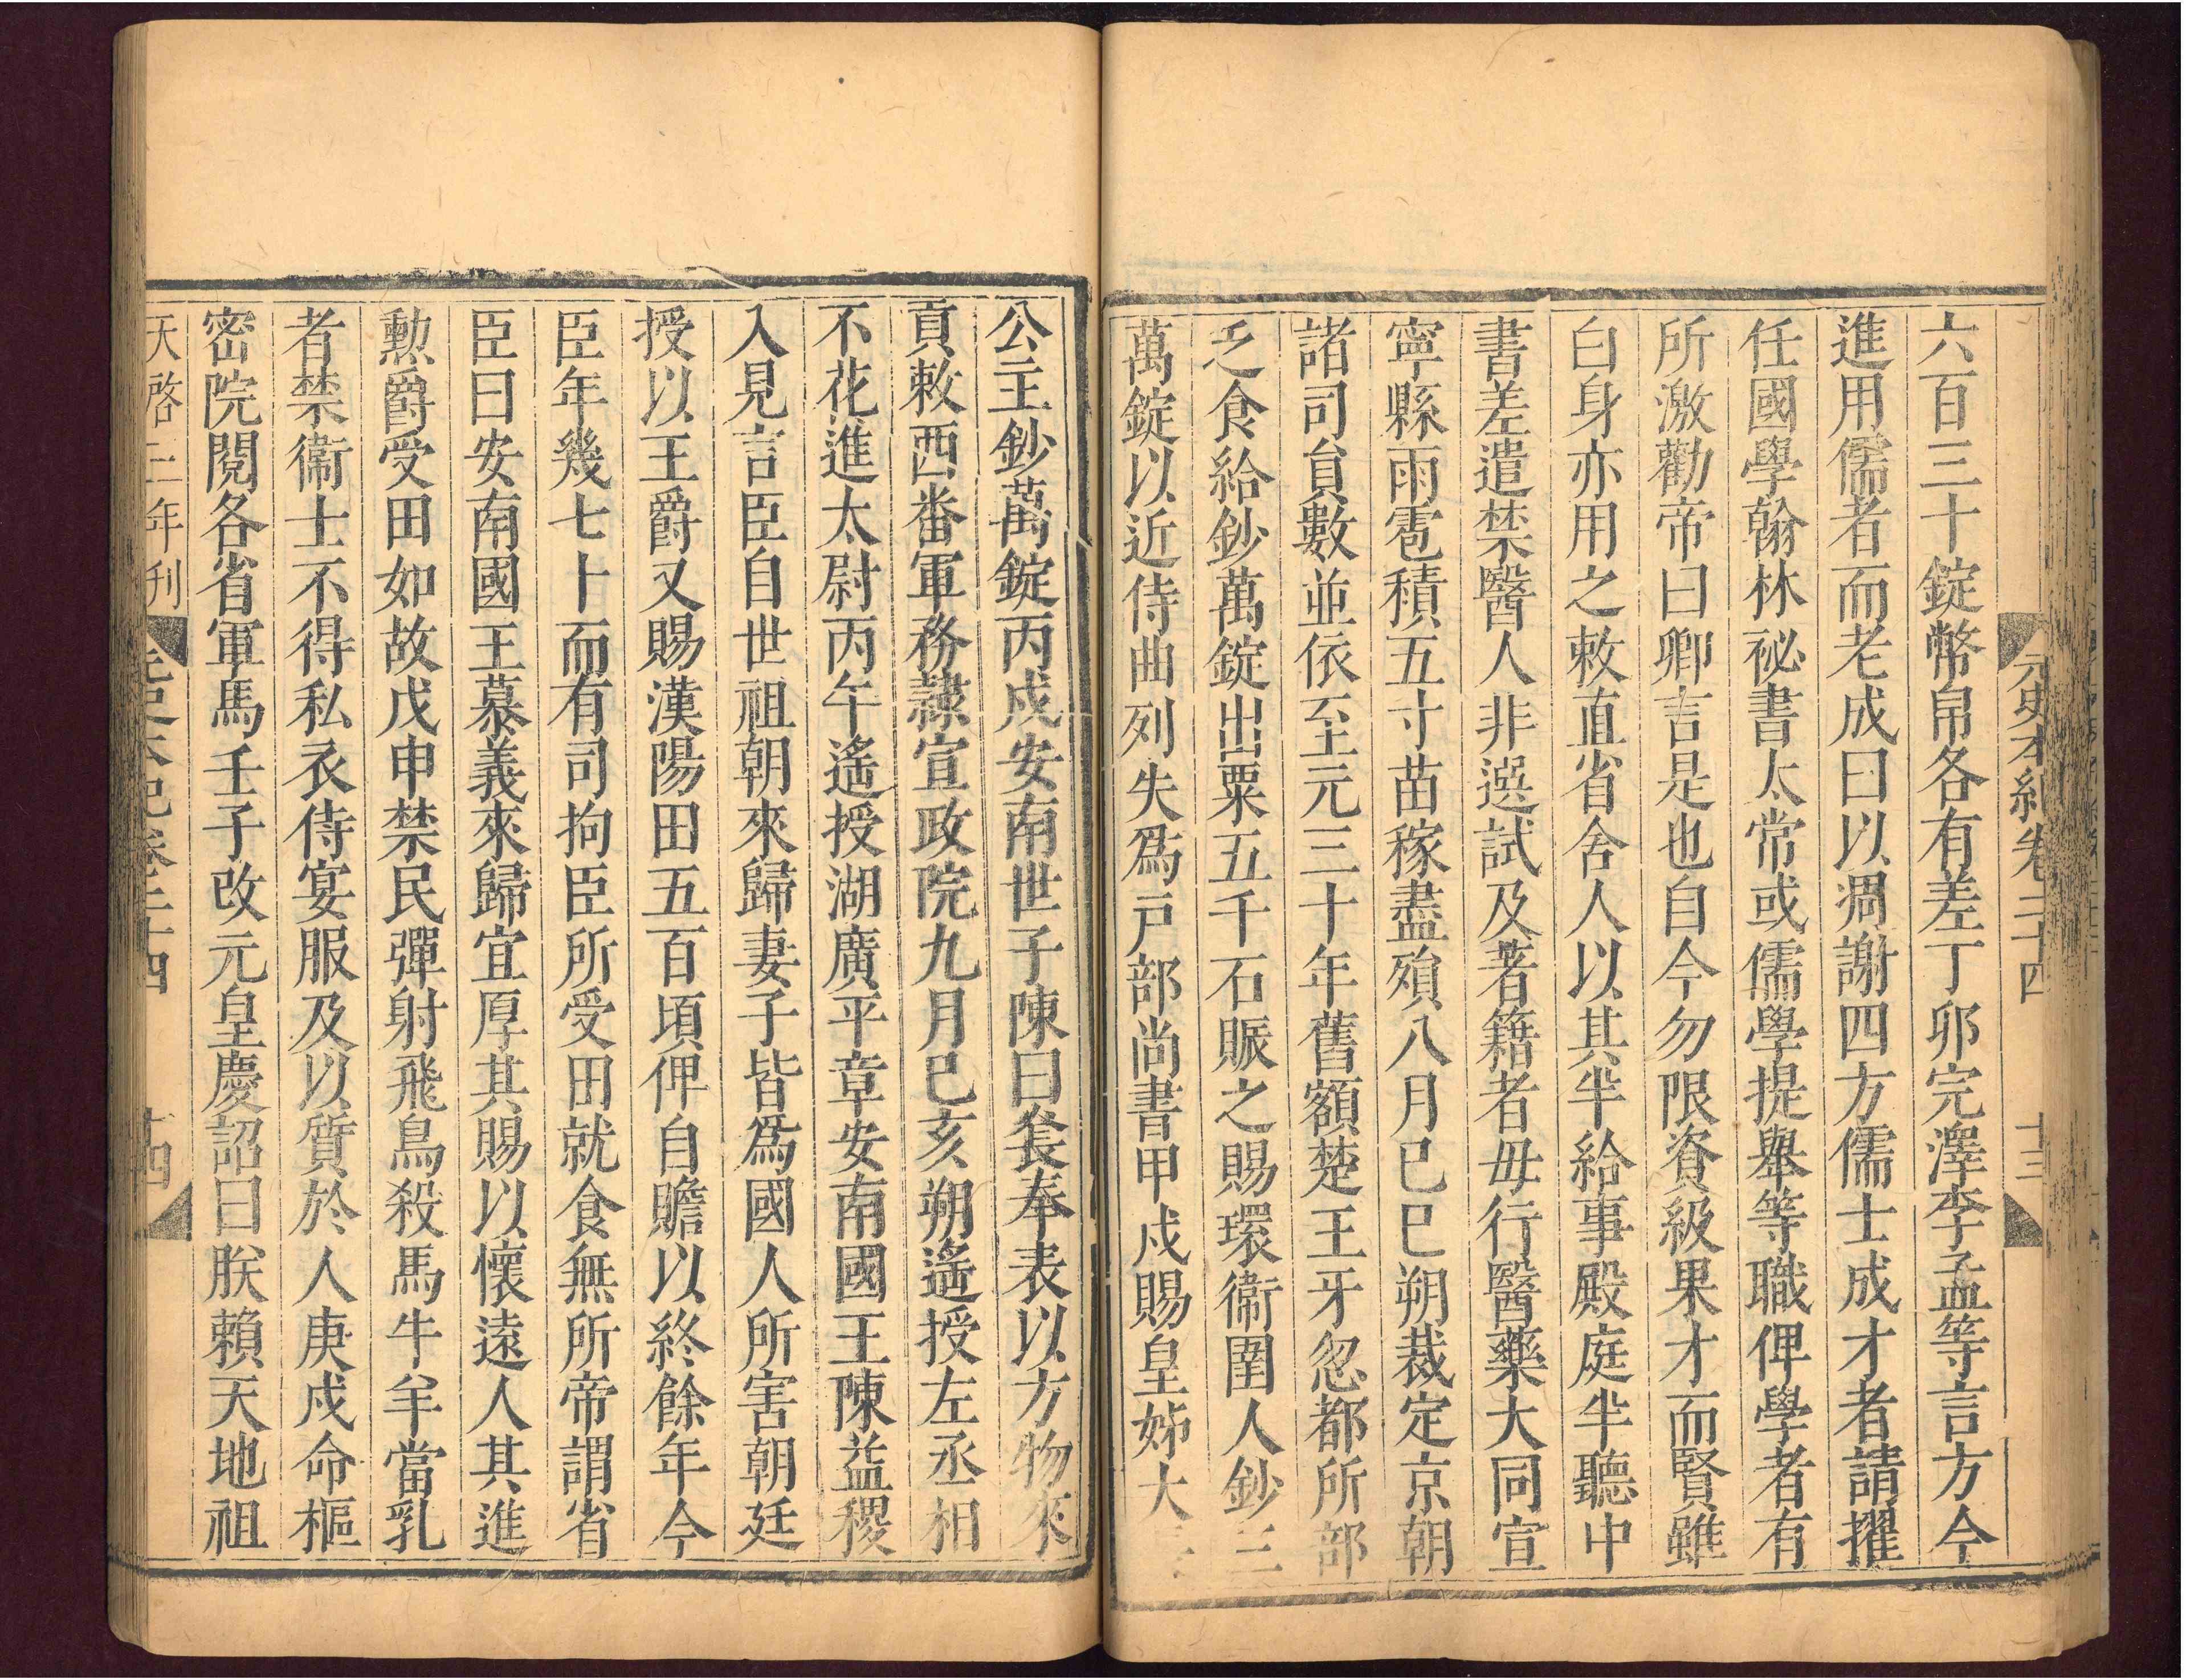 元史本紀卷二十四 十三
六百三十錠幣帛各有差丁卯完澤李孟等言方今
進用儒者而老成日以凋謝四方儒士成才者請擢
任國學翰林祕書太常或儒學提舉等職俾學者有
所激勸帝曰卿言是也自今勿限資級果才而賢雖
白身亦用之敕直省舍人以其半給事殿庭半聽中
書差遣禁醫人非選試及著籍者毋行醫藥大同宣
寧縣雨雹積五寸苗稼盡殞八月巳巳朔裁定京朝
諸司負數並依至元三十年舊額楚王牙忽都所部
乏食給鈔萬錠出粟五千石賑之賜環衞圉人鈔三
萬錠以近侍曲列失爲戸部尚書甲戍賜皇姊大
公主鈔萬錠丙戍安南世子陳日㷃奉表以方物來
貢敕西番軍務隷宣政院九月巳亥朔遙授左丞相
不花進太尉丙午遙授湖廣平章安南國王陳益稷
入見言臣自世祖朝來歸妻子皆爲國人所害朝廷
授以王爵又賜漢陽田五百頃俾自贍以終餘年今
臣年幾七十而有司拘臣所受田就食無所帝謂省
臣曰安南國王慕義來歸宜厚其賜以懷遠人其進
勲爵受田如故戊申禁民彈射飛鳥殺馬牛羊當乳
者禁衞士不得私衣侍宴服及以質於人庚戍命樞
密院閱各省軍馬壬子改元皇慶詔曰朕賴天地祖
天啓三年刊 元史本紀卷二十四 十四